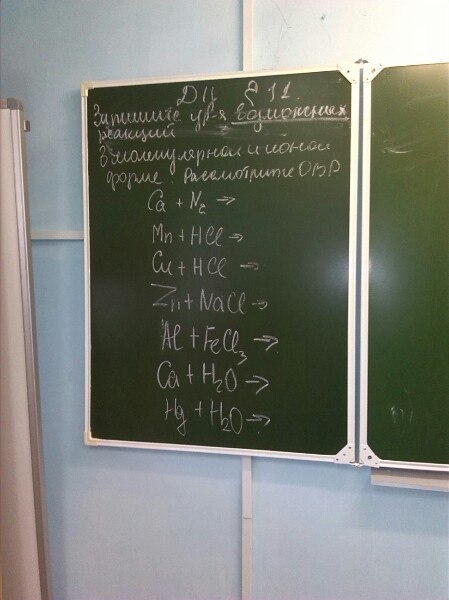 Д II § 11.
Запишите ур-я возможных
реакций
В молекулярной и ионной
форме. Рассмотрите ОВР
Ca + N₂ →
Mn + HCl →
Cu + HCl →
Zn + NaCl →
Al + FeCl₃ →
Ca + H₂O →
Hg + H₂O →